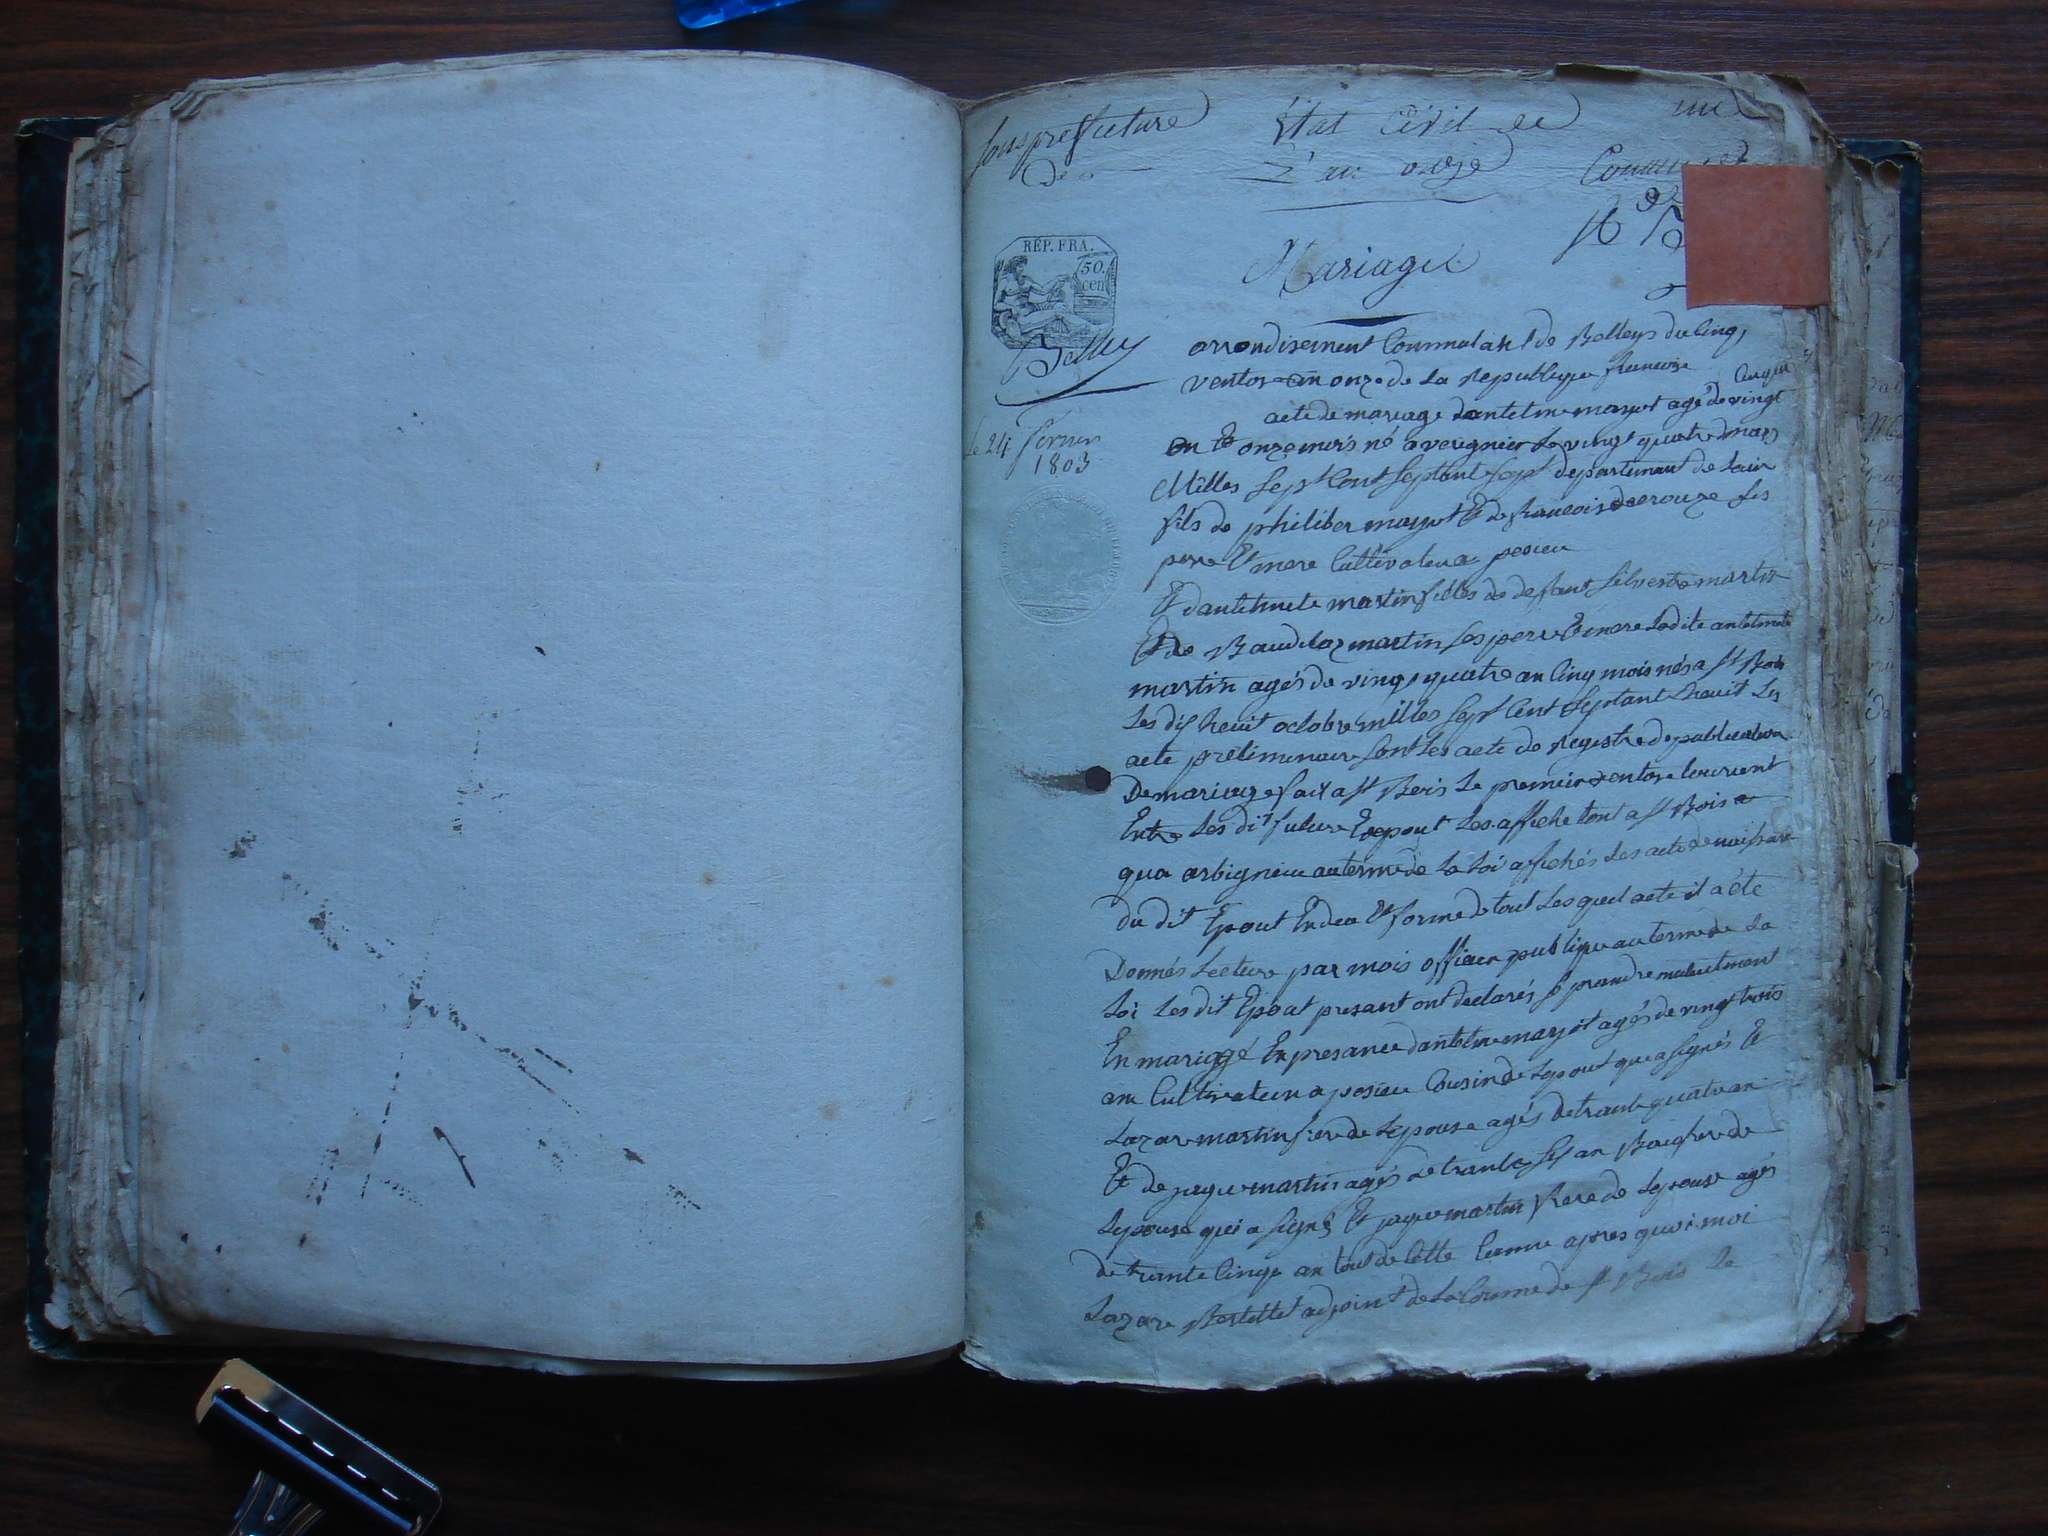 Sous prefecture
de
État Civil de
L'an onze
Commune
St B
Mariage
RÉP. FRA.
50.
cen
Belley
le 24 fevrier
1803
arrondisement Communal de Belleys du cinq
ventose an onze de la republique francoise
acte de mariage dantelme mayot agé de vingt cinq
an Et onze mois né a le vingt quatre mars
Milles sept Cent septant sept departemant de lain
fils de philiber mayot Et de francoise ses
pere Et mere Cultivateur a pesieu
Et dantelmete martin filles de defunt silvestre martin
Et de martin ses pere Et mere la dite antelmete
martin agés de vingt quatre an cinq mois nés a st Bois
les dis heuit octobre milles sept Cent septant heuit les
acte preliminaire sont les acte de registre de publication
De mariage fait a st Bois le premier ventose courient
Entre les dit futur Epout les affiche tont a st Bois a
qua arbignieu au terme de la loi affichés les acte de naissance
du dit Epout En du Et forme de tout les quel acte il a été
Donnés lecture par mois officier publique au terme de la
loi les dit Epout presant ont declarés se prandre mutuelmant
En mariage En presance dantelme mayot agés de vingt trois
ans Cultivateur a pesieu Cousin de lepout que a signés Et
lazare martin frere de lepouse agés de trante quatre an
Et de jaque martin agés de trante sis an Baufrere de
lepouse qui a signé Et jaque martin frere de lepouse agés
de trante cinq an tout de cette Comune apres quoi moi
lazare Bertettet adjoint de la Comune de st Bois le